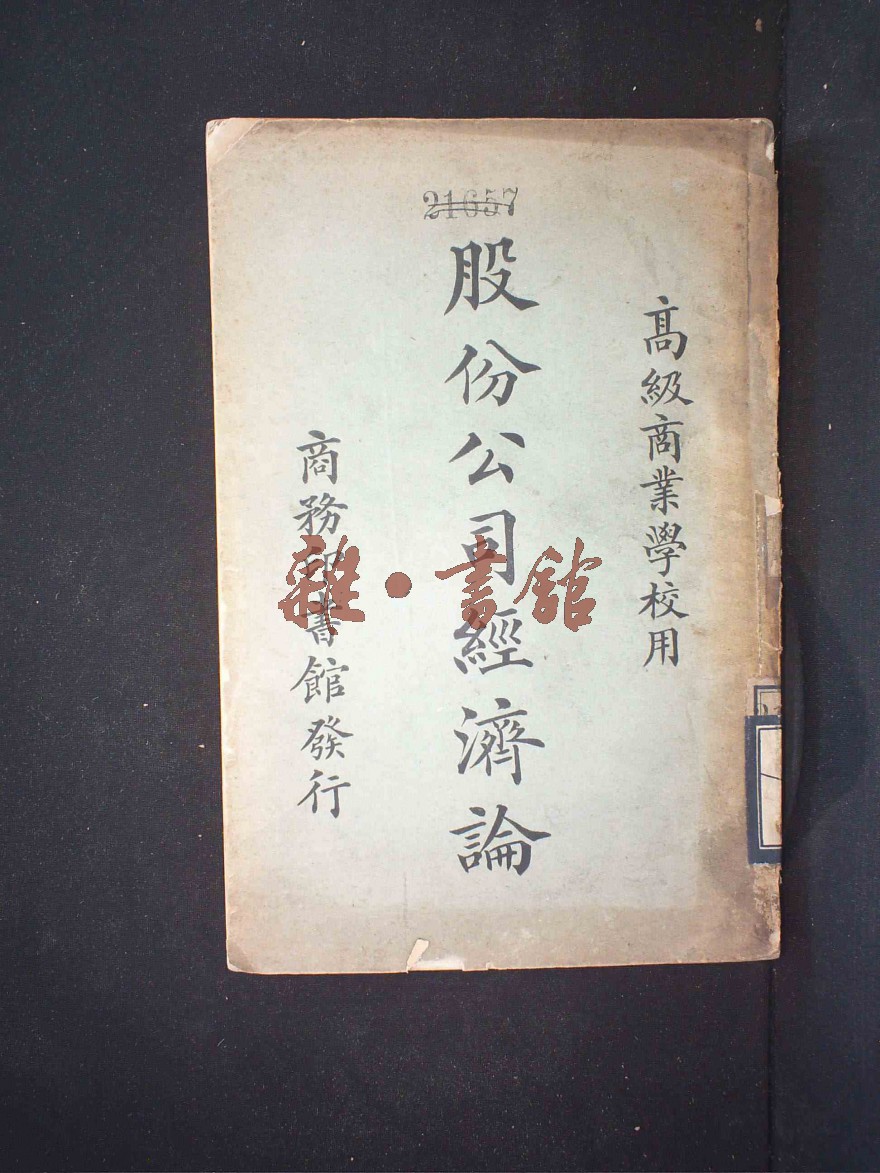 21657
高級商業學校用
股份公司經濟論
商務印書館發行
雜·書館